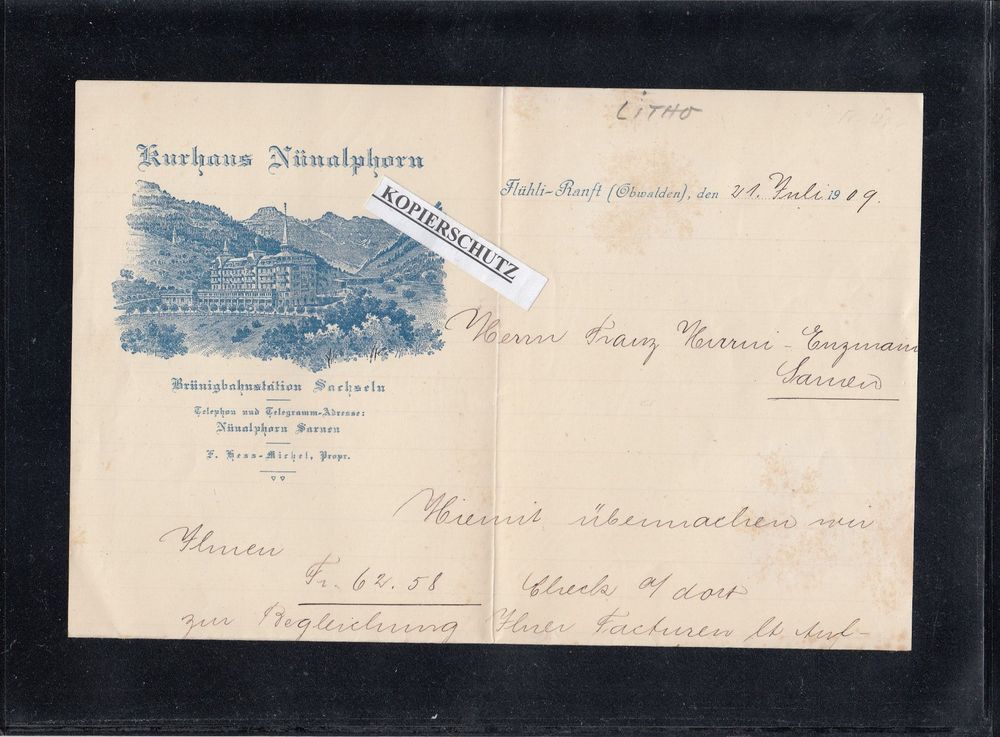 LITHO
Kurhaus Nünalphorn
Flühli-Ranft (Obwalden), den 21. Juli 1909.
KOPIERSCHUTZ
Herrn Franz Hurni - Enzmann
Sarnen
Brünigbahnstation Sachseln
Telephon und Telegramm-Adresse:
Nünalphorn Sarnen
F. Hess-Michel, Propr.
Hiemit übermachen wir
Ihnen
Fr. 62.58 Check a/ dort
zur Begleichung Ihrer Facturen lt. Auf-